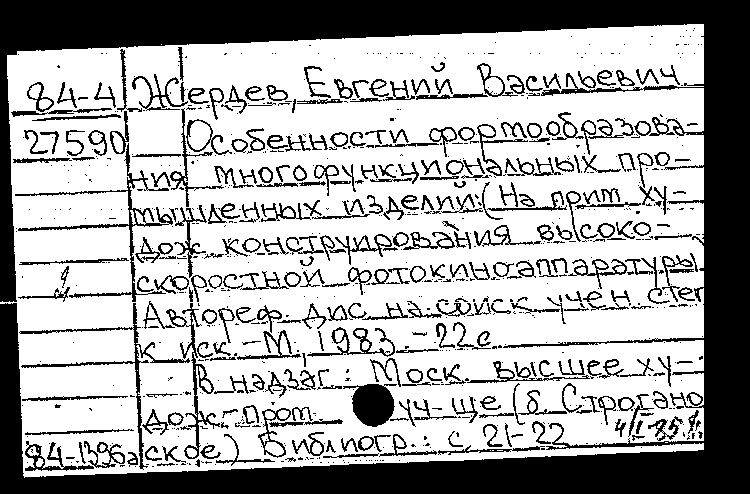 84-4 Жердев, Евгений Васильевич.
27590 Особенности формообразова-
ния многофункциональных про-
мышленных изделий: (На прим. ху-
дож. конструирования высоко-
скоростной фотокиноаппаратуры)
Автореф. дис. на соиск. учен. степ
к. иск. - М., 1983. - 22 с.
В надзаг: Моск. высшее ху-
дож.-пром. уч-ще (б. Строгано
84-1396а ское) Библиогр.: с. 21-22